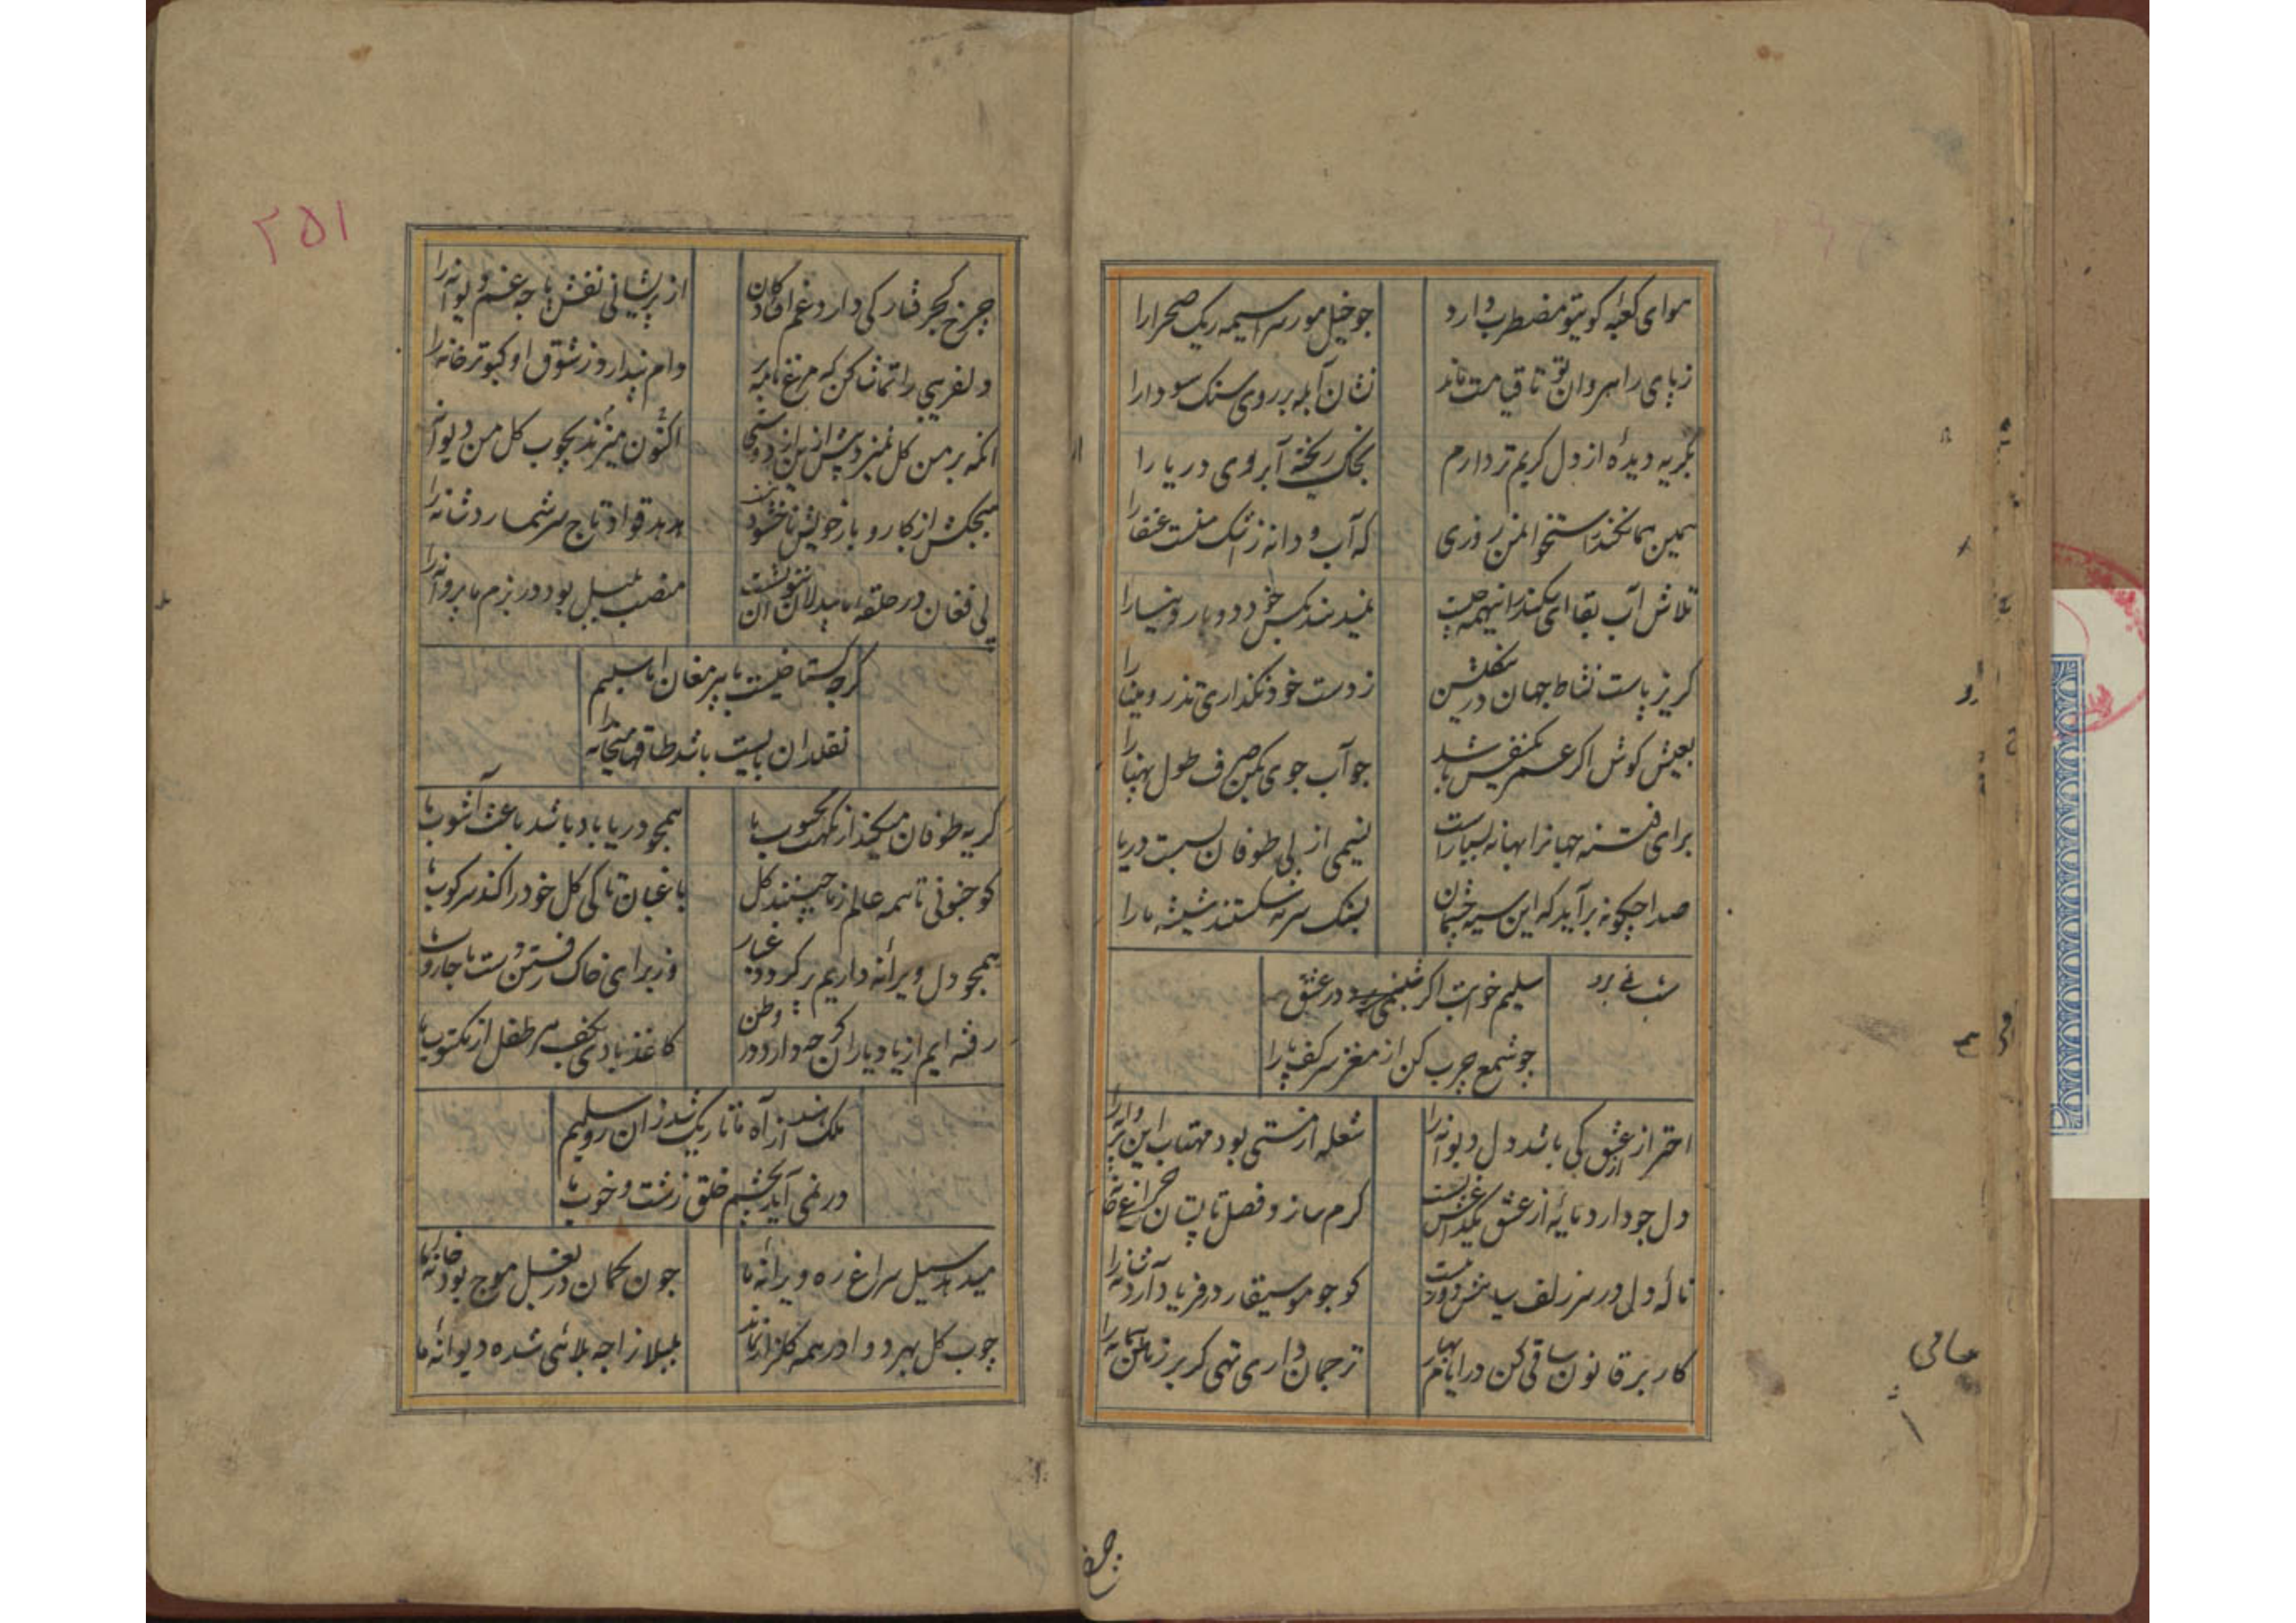 هوای کعبه کویتو مضطرب دارد
جو خیل مور سراسیمه ریک صحرا را
ز پای راهروان تو تا قیامت ماند
نشان آبله بر روی سنک سودا را
بکریه دیدهٔ از دل کریم تر دارم
بخاک ریخته آبروی دریا را
همین هما نخند استخوانمن روزی
که آب و دانه ز اشک منست عنقا را
تلاش آب بقا ای سکندر اینهمه چیست
بمیدهند بکس خود دوبار دنیا را
کریز پاست نشاط جهان درین کلشن
ز دست خود نکذاری تذرو مینا را
بعیش کوش اکر عمر یکنفس باشد
جو آب جوی مکن صرف طول پهنا را
برای فتنه جهانرا بهانه بسیارست
نسیمی از پی طوفان بسست دریا را
صدا چکونه برآید که این سیه چشمان
بسنک سرمه شکستند شیشه ما را
سلیم خوابت اکر شب نمی برد در عشق
شب نمی برد
جو شمع چرب کن از مغز سر کف پا را
احتراز از عشق کی باشد دل دیوانه را
شعله از مستی بود مهتاب این پروانه را
دل جو دارد مایه از عشق
کرم سازد فصل تابستان چراغ خانه را
نالهٔ دل در سر زلف سیاهش دور نیست
کو جو موسیقار در فریاد آرد شانه را
کار بر قانون ساقی کن در ایام بهار
ترجمان داری تهی کر بر زمین پیمانه را
جرخ
۲۵۱
چرخ کجرفتار کی دارد غم افتادکان
از پریشانی نقش پا چه غم دیوانه را
دلفریبی را تماشا کن که مرغ نامه بر
دام پندارد ز شوق او کبوترخانه را
آنکه بر من کل نمیزد پیش ازین از دوستی
اکنون میزند بچوب کل من دیوانه را
هیجکس از کار و بار خویش ناخشنود نیست
هدهد قواد تاج سر شمارد شانه را
بی فغان در حلقه ما بیدلان نتوان نشست
منصب بلبل بود در بزم ما پروانه را
کرجه کستاخیست با پیر مغان اما سلیم
نقلدان بایست باشد طاقهای میخانه را
کریه طوفان میکند از نکهت محبوب ما
همجو دریا باد باشد باعث آشوب ما
کو جنونی تا همه عالم ز ما چینند کل
باغبان تا کی کل خود را کند سرکوب ما
همجو دل ویرانهٔ داریم پر کرد و غبار
وز برای خاک رفتن دست ما جاروب ما
رفته ایم از یاد یاران کرجه دارد در وطن
کاغذ بادی بکف هر طفل از مکتوب ما
ملک هند از آه ما تاریک شد زان رو سلیم
در نمی آید بچشم خلق زشت و خوب ما
میدهد سیل سراغ ره ویرانه ما
جون کمان در بغل موج بود خانه ما
چوب کل بهر دوا در همه کلزار نماند
بلبلانرا چه بلائی شده دیوانهٔ ما